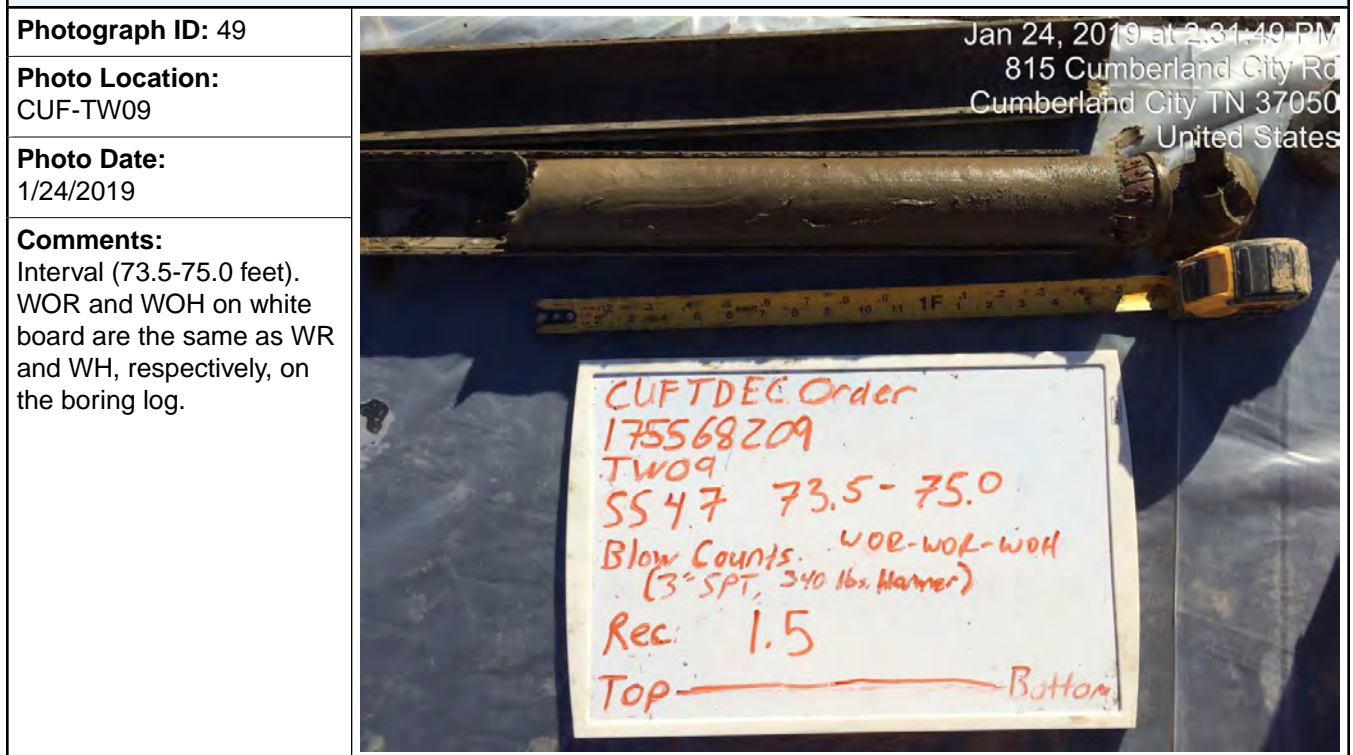 Photograph ID: 49
Photo Location:
CUF-TW09
Photo Date:
1/24/2019
Comments:
Interval (73.5-75.0 feet).
WOR and WOH on white
board are the same as WR
and WH, respectively, on
the boring log.
Jan 24, 2019 at 2:31:49 PM
815 Cumberland City Rd
Cumberland City TN 37050
United States
1F
CUF TDEC Order
175568209
TW09
SS47 73.5-75.0
Blow Counts. WOR-WOR-WOH
(3" SPT, 340 lbs. Hammer)
Rec: 1.5
Top Bottom